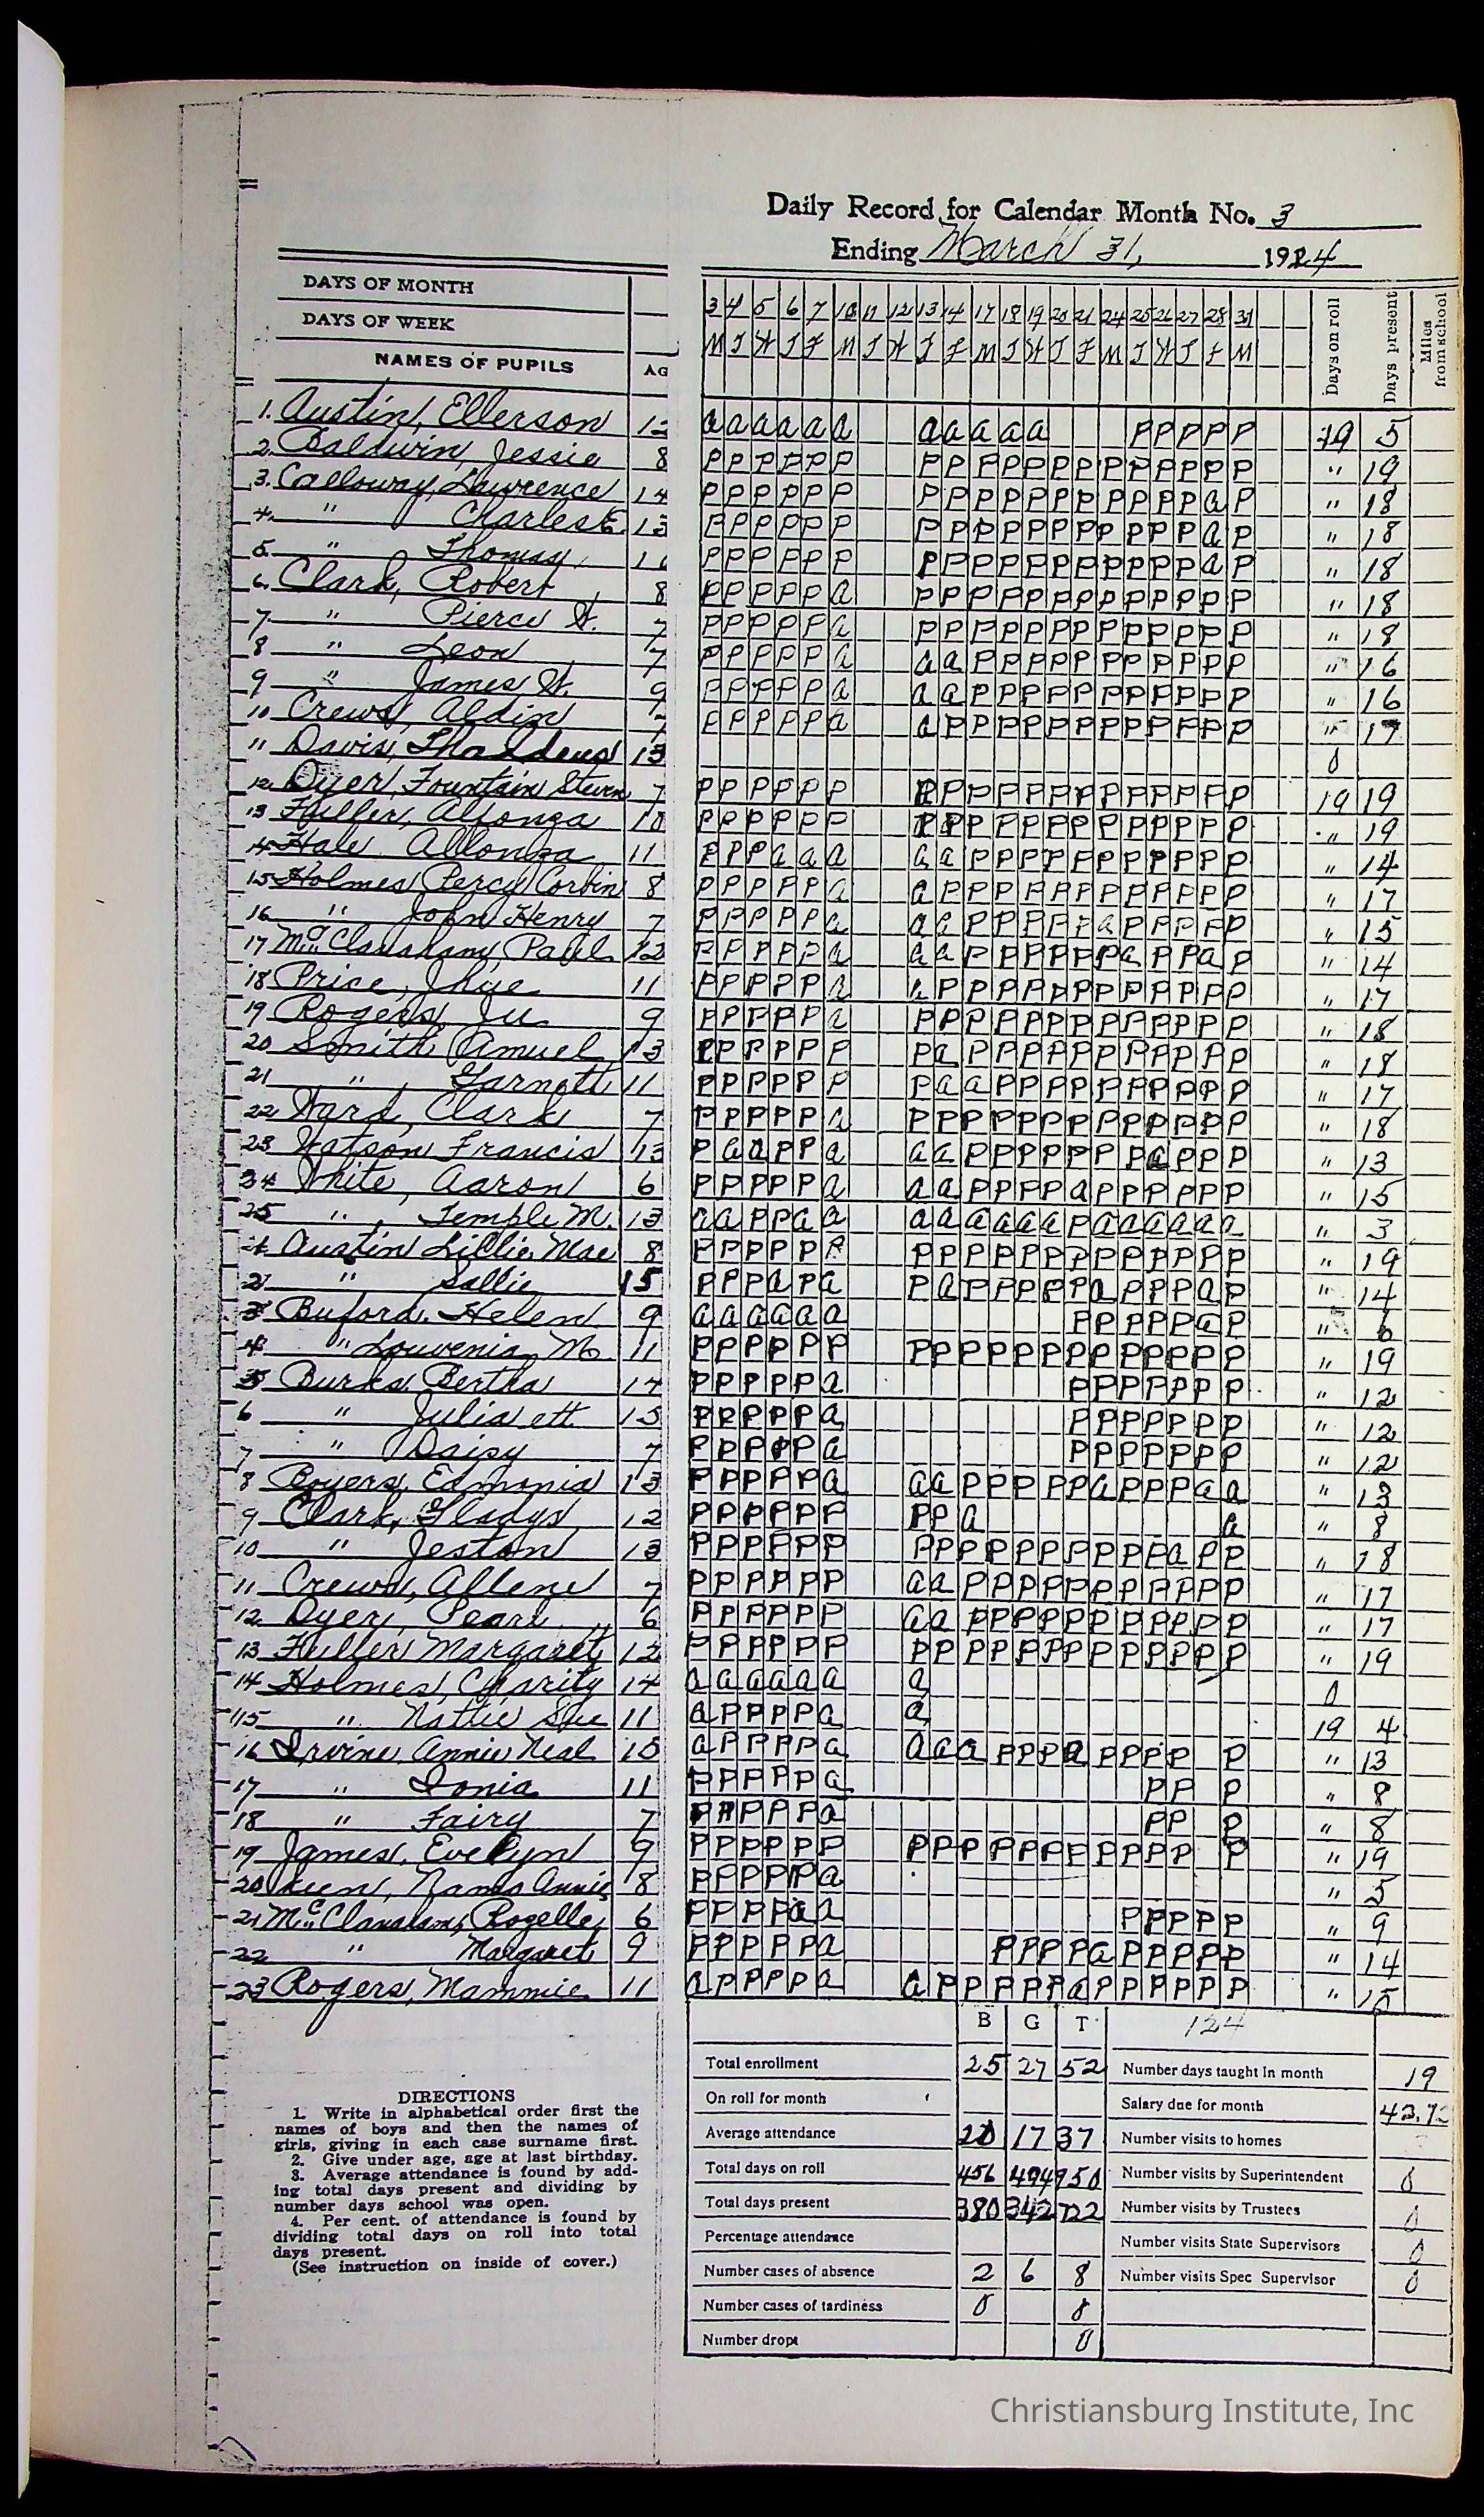 Daily Record for Calendar Month No. 3
Ending March 31, 1924
DAYS OF MONTH 3 4 5 6 7 10 11 12 13 14 17 18 19 20 21 24 25 26 27 28 31 Days on roll Days present Miles from school
DAYS OF WEEK M T W T F M T W T F M T W T F M T W T F M
NAMES OF PUPILS AG
1. Austin, Ellerson 12 a a a a a a a a a a a P P P P P 19 5
2. Baldwin, Jessie 8 P P P P P P P P P P P P P P P P P P P " 19
3. Calloway, Lawrence 14 P P P P P P P P P P P P P P P P P a P " 18
4. " Charles E. 13 P P P P P P P P P P P P P P P P P a P " 18
5. " Thomas P P P P P P P P P P P P P P P P P a P " 18
6. Clark, Robert 8 P P P P P a P P P P P P P P P P P P P " 18
7. " Pierce W. 7 P P P P P a P P P P P P P P P P P P P " 18
8 " Leon 7 P P P P P a a a P P P P P P P P P P P " 16
9 " James W. 9 P P P P P a a a P P P P P P P P P P P " 16
10 Crews, Aldin 7 P P P P P a a P P P P P P P P P P P P " 17
11 Davis, Thaddeus 13 0
12 Dyer, Fountain Steven 7 P P P P P P P P P P P P P P P P P P P 19 19
13 Fuller, Alfonza 10 P P P P P P P P P P P P P P P P P P P " 19
14 Hale Allonza 11 P P P a a a a a P P P P P P P P P P P " 14
15 Holmes Percy Corbin 8 P P P P P a a P P P P P P P P P P P P " 17
16 " John Henry 7 P P P P P a a a P P P P P a P P P P P " 15
17 McClanahan, Paul 12 P P P P P a a a P P P P P P a P P a P " 14
18 Price, 11 P P P P P a a P P P P P P P P P P P P " 17
19 Rogers, Ju 9 P P P P P a P P P P P P P P P P P P P " 18
20 Smith, Amuel 13 P P P P P P P a P P P P P P P P P P P " 18
21 " Garnett 11 P P P P P P P a a P P P P P P P P P P " 17
22 Ward, Clark 7 P P P P P a P P P P P P P P P P P P P " 18
23 Watson Francis 13 P a a P P a a a P P P P P P P a P P P " 13
34 White, Aaron 6 P P P P P a a a P P P P a P P P P P P " 15
25 " Temple M. 13 a a P P a a a a a a a a P a a a a a a " 3
Austin Lillie Mae 8 P P P P P P P P P P P P P P P P P P P " 19
2 " Sallie 15 P P P a P a P a P P P P P a P P P a P " 14
3 Buford, Helen 9 a a a a a a P P P P P a P " 6
4 " Louvenia M 11 P P P P P P P P P P P P P P P P P P P " 19
5 Burks Bertha 14 P P P P P a P P P P P P P " 12
6 " Juliaett 13 P P P P P a P P P P P P P " 12
7 " Daisy 7 P P P P P a P P P P P P P " 12
8 Boyers, Edmonia 13 P P P P P a a a P P P P P a P P P a a " 13
9 Clark, Gladys 12 P P P P P P P P a a " 8
10 " Jeston 13 P P P P P P P P P P P P P P P P a P P " 18
11 Crews, Allene 7 P P P P P P a a P P P P P P P P P P P " 17
12 Dyer, Pearl 6 P P P P P P a a P P P P P P P P P P P " 17
13 Fuller Margaret 12 P P P P P P P P P P P P P P P P P P P " 19
14 Holmes, Charity 14 a a a a a a a 0
15 " Nattie Sue 11 a P P P P a a 19 4
16 Irvine, Annie Neal 10 a P P P P a a a a P P P a P P P P P " 13
17 " Ionia 11 P P P P P a P P P " 8
18 " Fairy 7 P P P P P a P P P " 8
19 James, Evelyn 9 P P P P P P P P P P P P P P P P P P " 19
20 8 P P P P P a " 5
21 McClanahan, Rozelle 6 P P P P a a P P P P P " 9
22 " Margaret 9 P P P P P a P P P P a P P P P P " 14
23 Rogers, Mammie 11 a P P P P a a P P P P P P a P P P P P P " 15
B G T 124
Total enrollment 25 27 52 Number days taught In month 19
On roll for month Salary due for month 43.7
Average attendance 20 17 37 Number visits to homes
Total days on roll 456 494 950 Number visits by Superintendent 0
Total days present 380 342 722 Number visits by Trustees 0
Percentage attendance Number visits State Supervisors 0
Number cases of absence 2 6 8 Number visits Spec Supervisor 0
Number cases of tardiness 0 8
Number drops 0
DIRECTIONS
1. Write in alphabetical order first the
names of boys and then the names of
girls, giving in each case surname first.
2. Give under age, age at last birthday.
3. Average attendance is found by add-
ing total days present and dividing by
number days school was open.
4. Per cent. of attendance is found by
dividing total days on roll into total
days present.
(See instruction on inside of cover.)
Christiansburg Institute, Inc